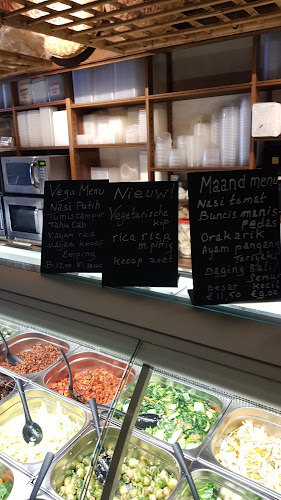 Vega Menu
Nasi Putih
Tumis campur
Tahu Cab
Kajian rara
Kajian kecap
Emping
Nieuw!
Vegetarische
kip
rica rica
m. pittig
kecap zoet
Maand menu
Nasi tomat
Buncis manis
Pedas
Orak arik
Ayam panggang
Teriyaki
Daging Bali
Semur
besar kecil
€ 11,50 € 9,00